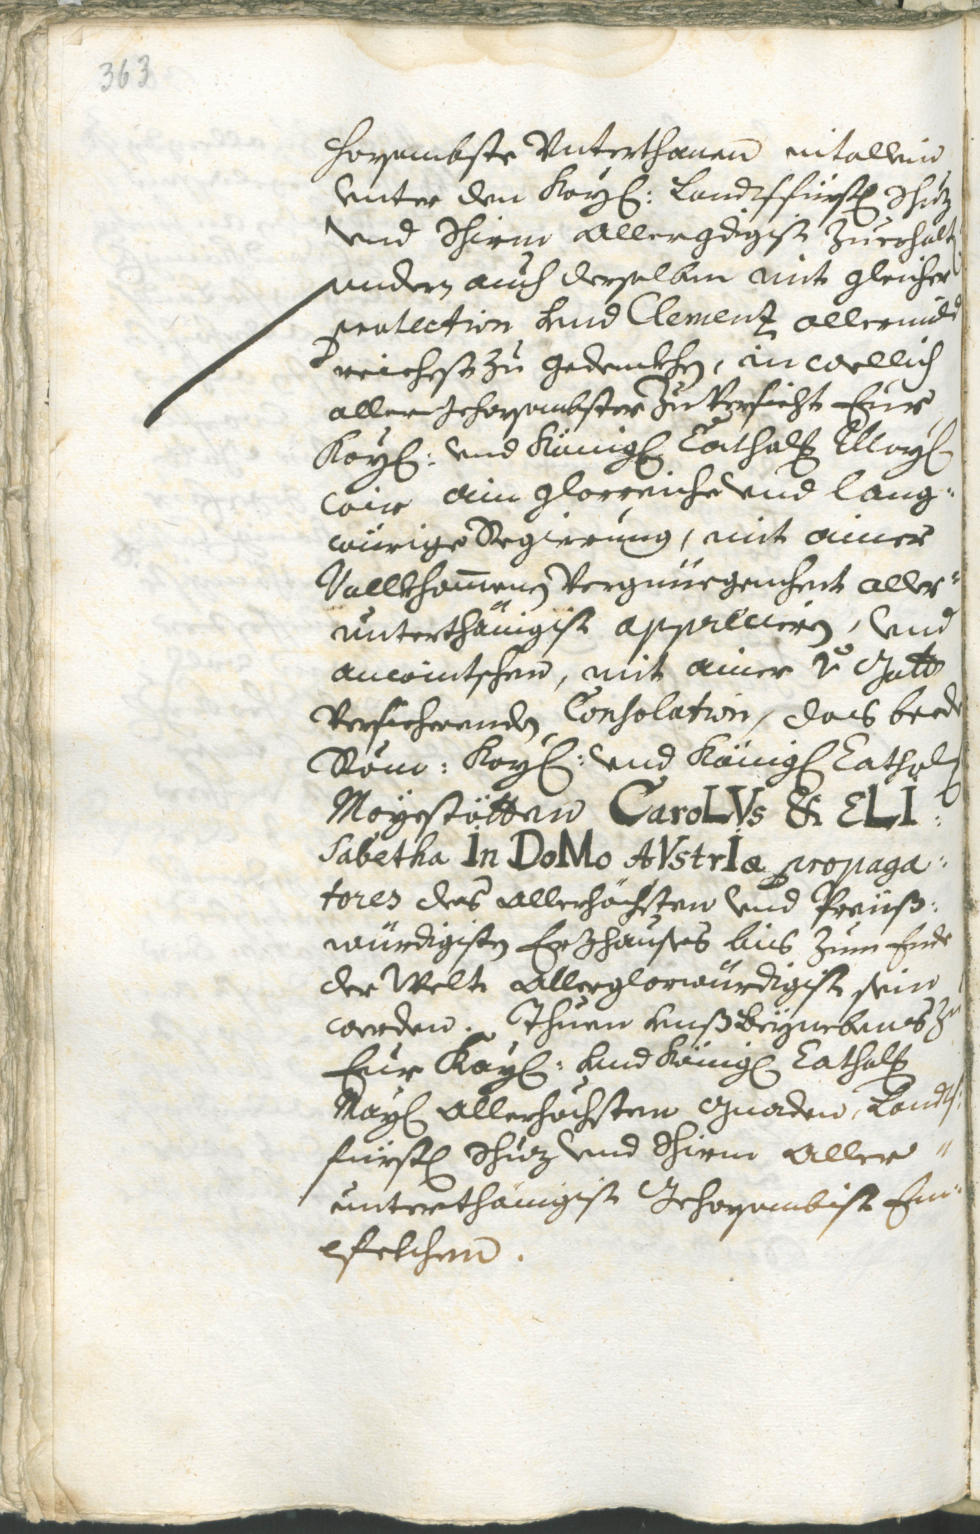 363
horsambste Unterthanen nit allein
unter den Kayß: Landtsfürstl Schuz
und Schirm Allergdigist zuerhalt
sondern auch derselben mit gleicher
protection und Clementz allermild
reichest zu gedenckhen, in wellich
aller gehorsambster Zuversicht Eur
Kayß: und Königl Cathol Mayß
wir ain glorreiche und lang-
würige Regierung, mit ainer
Vollkhommenen Vergnüegenheit aller-
unterthänigist apprecieren, und
anwintschen, mit ainer v Gott
versicherenden Consolation, das beede
Röm: Kayß: und Königl Cathol
Mayestätten CaroLVs & ELI-
sabetha In DoMo AVstrIæ propaga-
tores des allerhöchsten und Preiß-
würdigisten Erzhauses bis zum Ende
der Welt Allerglorwürdigist sein
werden. Thuen unß beynebens zu
Eur Kayß: und Königl Cathol
Mayß Allerhöchsten Gnaden, Landts-
fürstl Schuz und Schirm Aller-
unterthänigist Gehorsambist Em-
pfelchen.